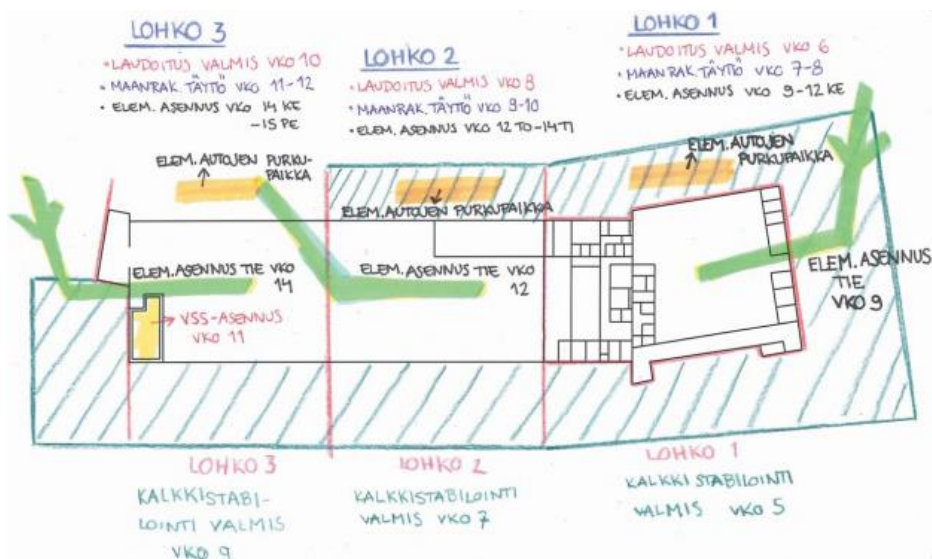 LOHKO 3
• LAUDOITUS VALMIS VKO 10
• MAANRAK. TÄYTÖ VKO 11-12
• ELEM. ASENNUS VKO 14 KE
-15 PE
LOHKO 2
• LAUDOITUS VALMIS VKO 8
• MAANRAK. TÄYTÖ VKO 9-10
• ELEM. ASENNUS VKO 12 TO-14 TI
LOHKO 1
• LAUDOITUS VALMIS VKO 6
• MAANRAK. TÄYTÖ VKO 7-8
• ELEM. ASENNUS VKO 9-12 KE
ELEM. AUTOJEN PURKU-
PAIKKA
ELEM. AUTOJEN PURKUPAIKKA
ELEM. AUTOJEN
PURKUPAIKKA
ELEM. ASENNUS TIE VKO
14
ELEM. ASENNUS TIE VKO
12
ELEM. ASENNUS
TIE
VKO 9
VSS-ASENNUS
VKO 11
LOHKO 3
KALKKISTABI-
LOINTI VALMIS
VKO 9
LOHKO 2
KALKKISTABILOINTI
VALMIS VKO 7
LOHKO 1
KALKKISTABILOINTI
VALMIS VKO 5